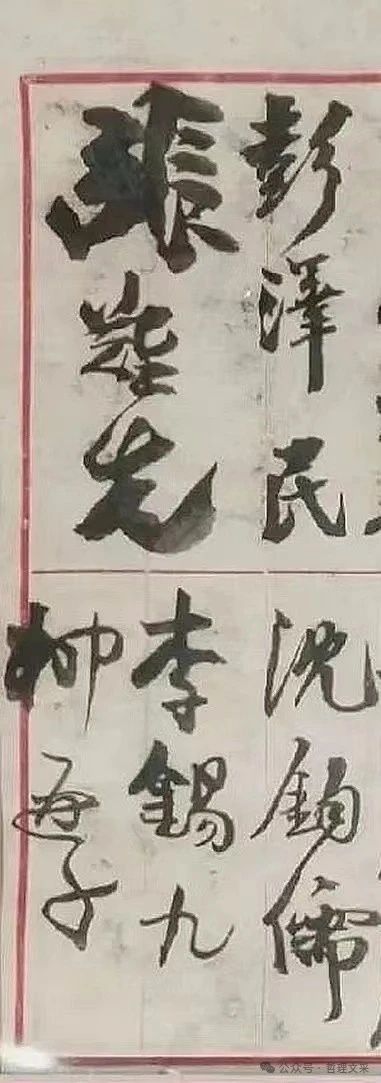 彭泽民
張難先
沈鈞儒
李錫九
柳亞子
公众号 · 哲理文采